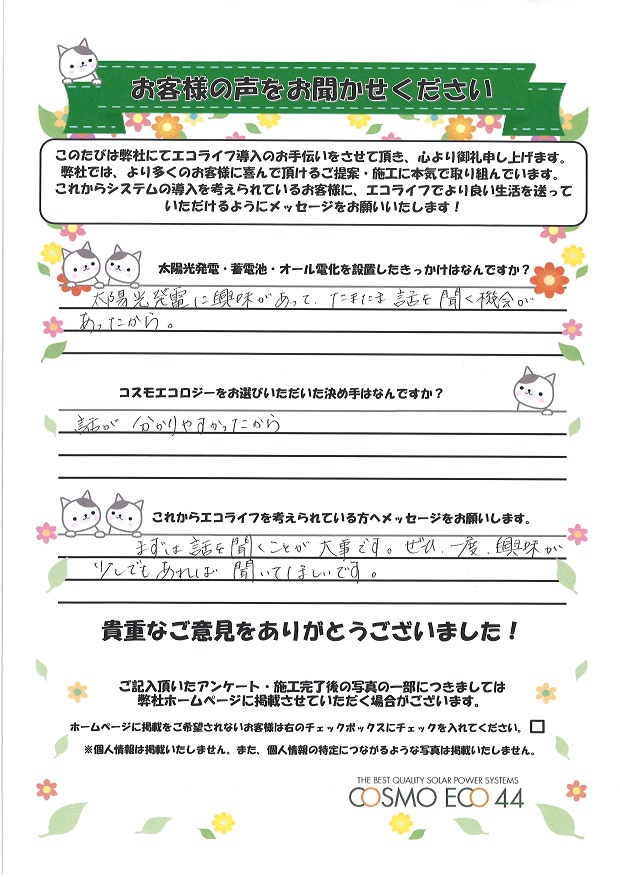 お客様の声をお聞かせください
このたびは弊社にてエコライフ導入のお手伝いをさせて頂き、心より御礼申し上げます。
弊社では、より多くのお客様に喜んで頂けるご提案・施工に本気で取り組んでいます。
これからシステムの導入を考えられているお客様に、エコライフでより良い生活を送って
いただけるようにメッセージをお願いいたします！
太陽光発電・蓄電池・オール電化を設置したきっかけはなんですか？
太陽光発電に興味があって、たまたま話を聞く機会が
あったから。
コスモエコロジーをお選びいただいた決め手はなんですか？
話が分かりやすかったから
これからエコライフを考えられている方へメッセージをお願いします。
まずは話を聞くことが大事です。ぜひ、一度、興味が
少しでもあれば聞いてほしいです。
貴重なご意見をありがとうございました！
ご記入頂いたアンケート・施工完了後の写真の一部につきましては
弊社ホームページに掲載させていただく場合がございます。
ホームページに掲載をご希望されないお客様は右のチェックボックスにチェックを入れてください。
※個人情報は掲載いたしません。また、個人情報の特定につながるような写真は掲載いたしません。
THE BEST QUALITY SOLAR POWER SYSTEMS
COSMO ECO 44